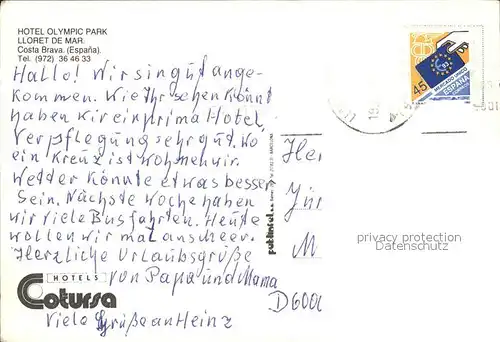 HOTEL OLYMPIC PARK
LLORET DE MAR.
Costa Brava. (España).
Tel. (972) 36 46 33
Hallo! Wir sin gut ange-
kommen. Wie Ihr sehen könnt
haben wir ein prima Hotel,
Verpflegung sehr gut. Wo
ein Kreuz ist wohnen wir.
Wetter könnte etwas besser
sein. Nächste Woche haben
wir viele Busfahrten. Heute
wollen wir mal ans Meer.
Herzliche Urlaubsgrüße
von Papa und Mama
HOTELS
Cotursa
Viele Grüße an Heinz
45
MERCADO UNICO
ESPAÑA
Her
Jür
M
D6000
privacy protection
Datenschutz